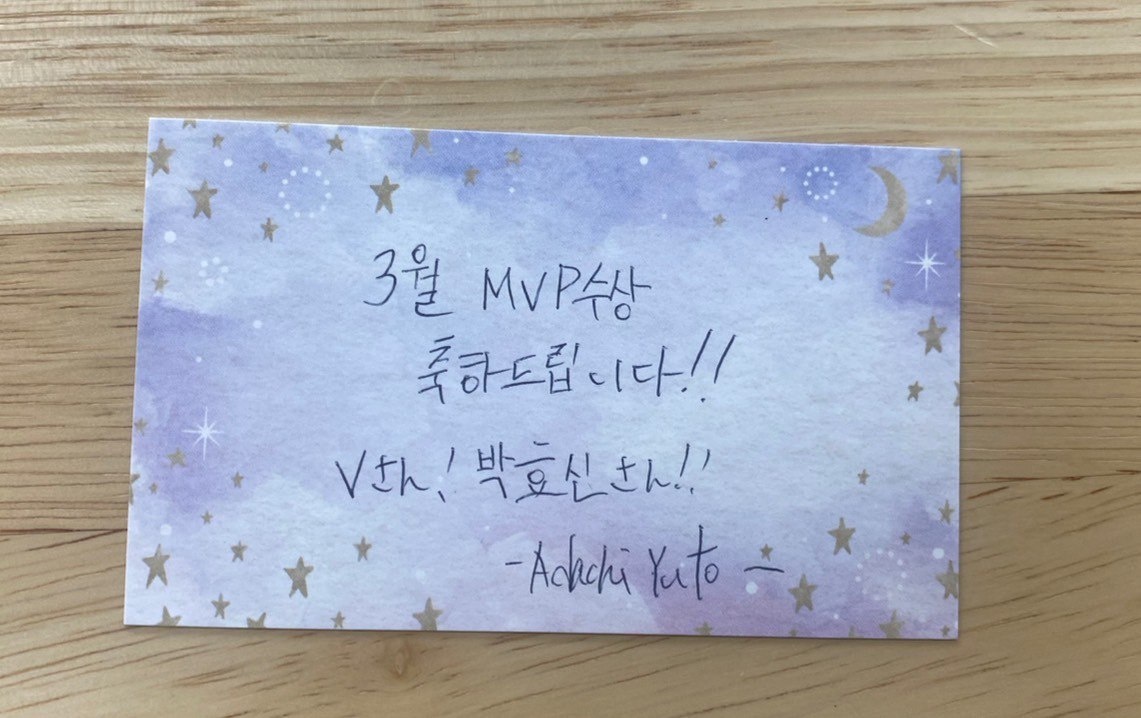 3월 MVP수상
축하드립니다!!
Vさん! 박효신さん!!
-Adachi Yuto-